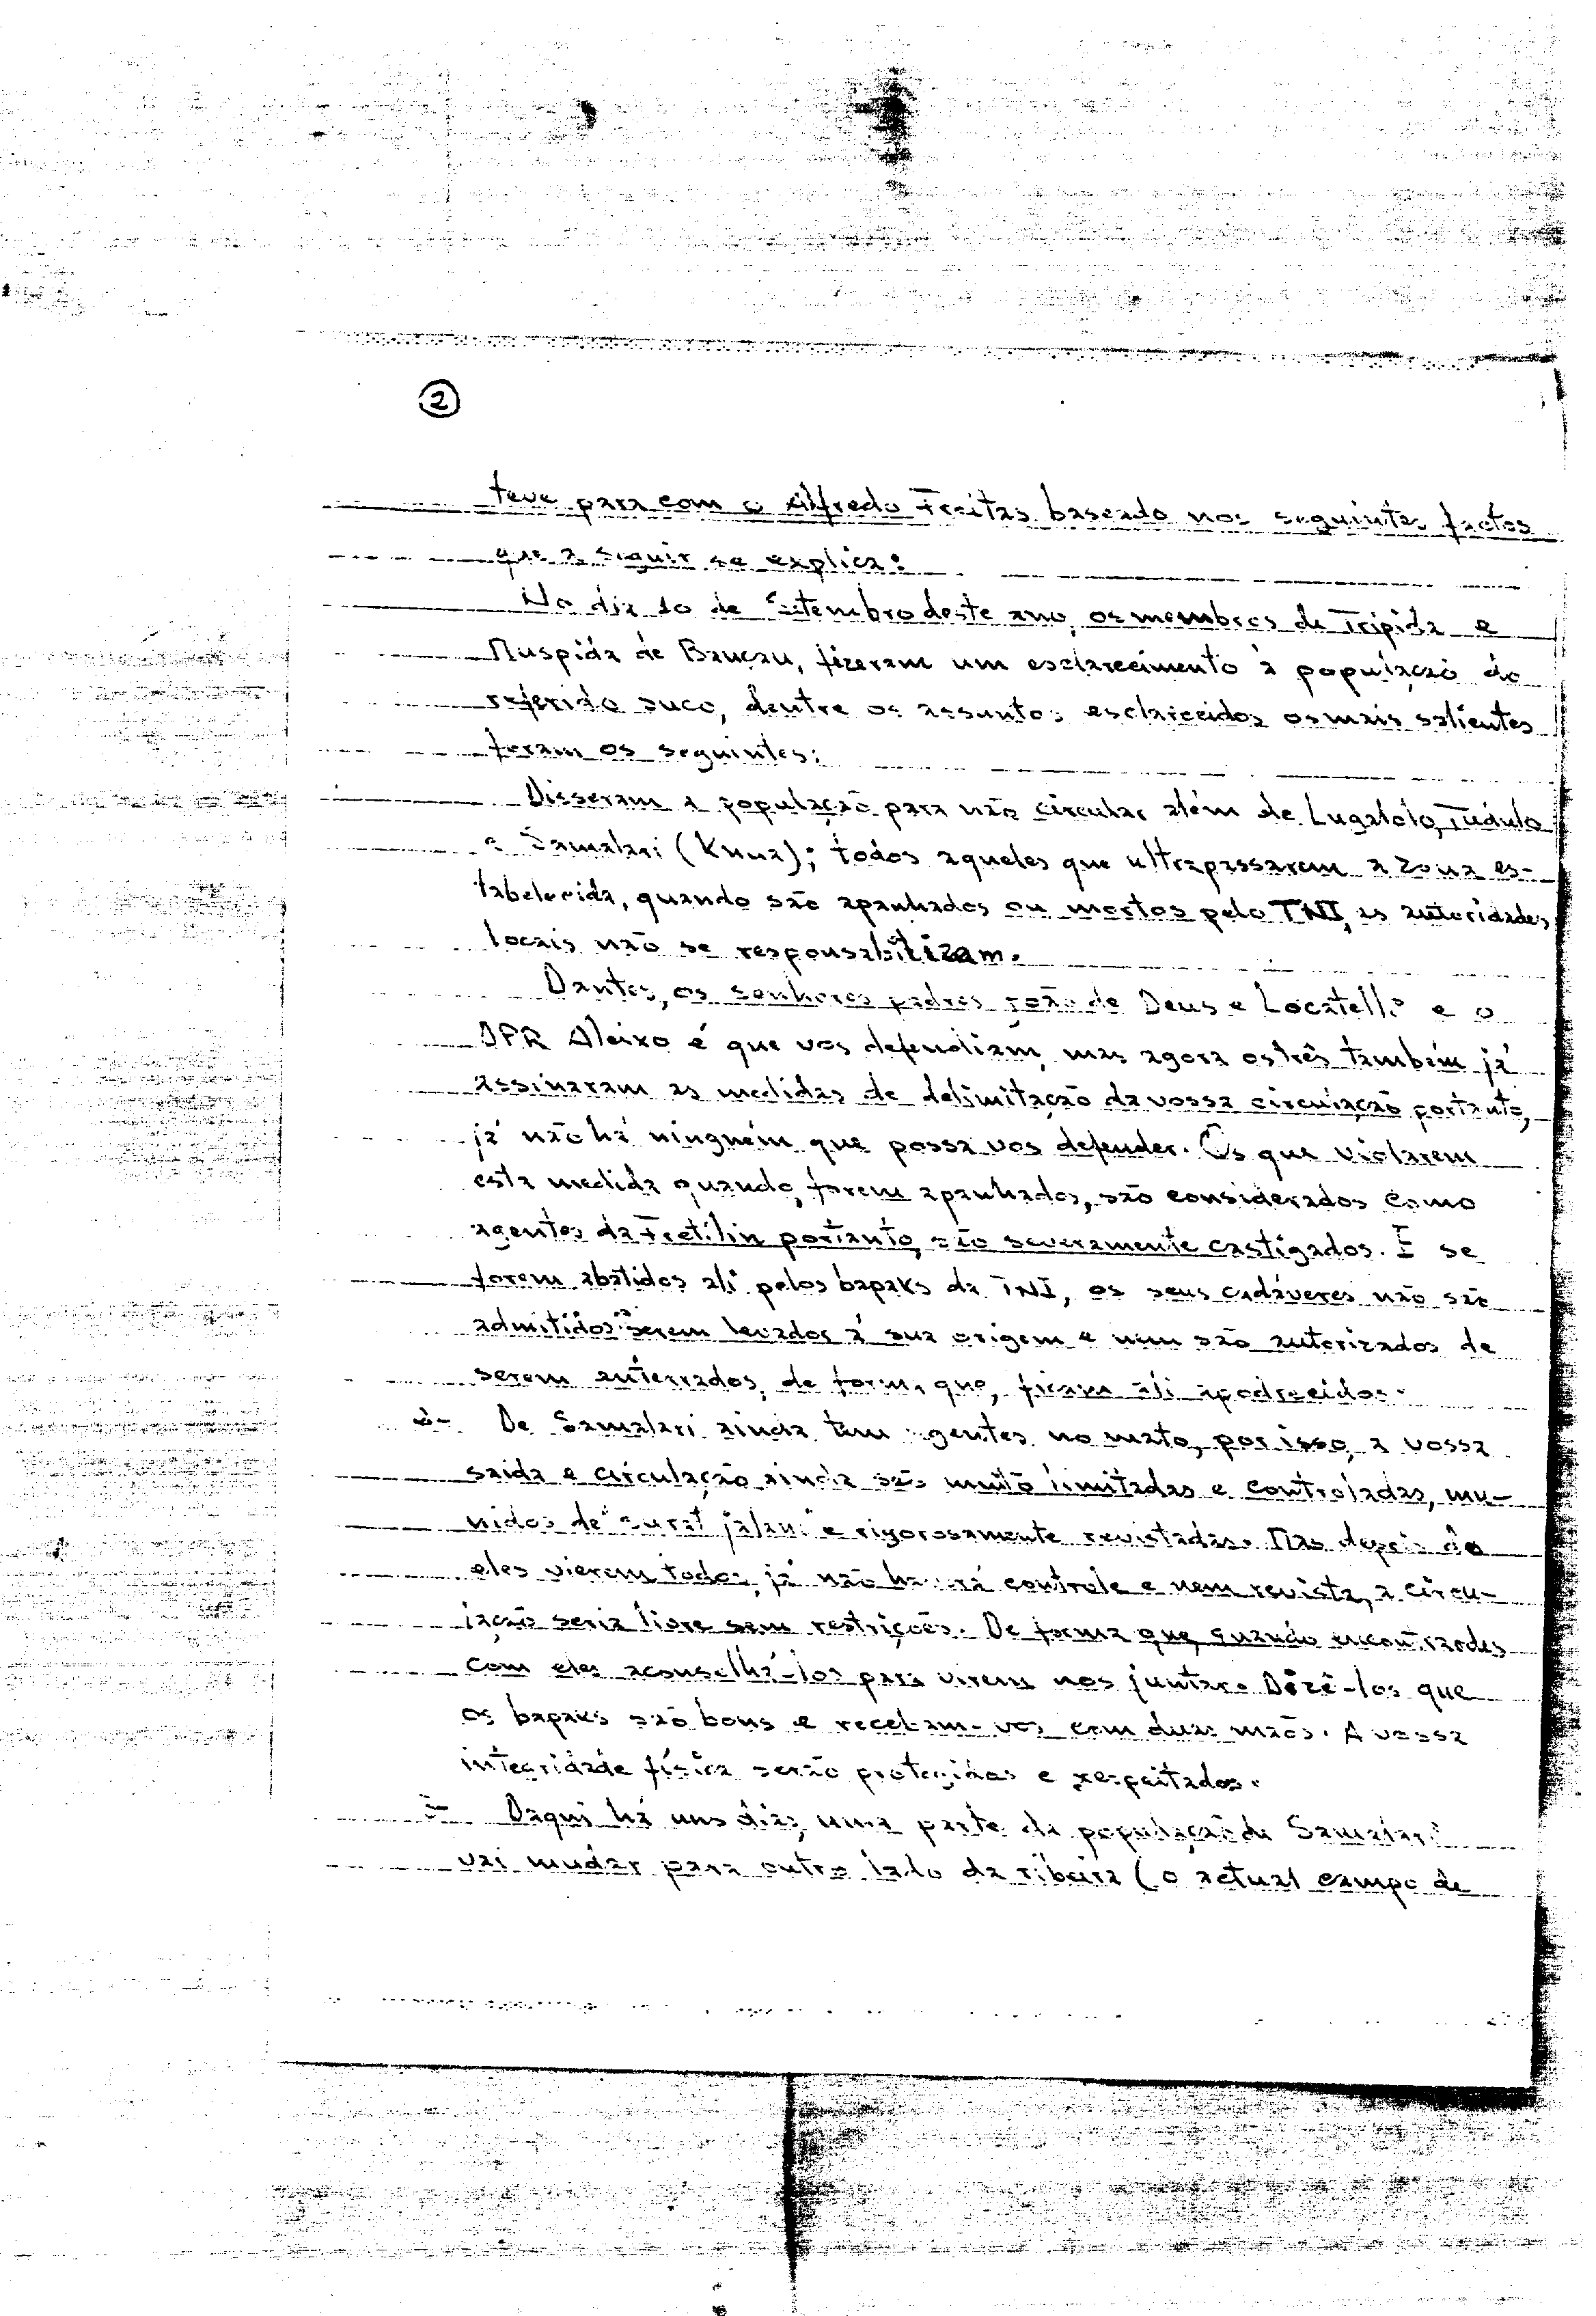 ②
teve para com o Alfredo Freitas baseado nos seguintes factos
que a seguir se explica:
No dia 10 de Setembro deste ano, os membros da Tripida e
Muspida de Baucau, fizeram um esclarecimento à população do
referido suco, dentre os assuntos esclarecidos os mais salientes
foram os seguintes:
Disseram a população para não circular além de Lugatoto, Tudulo
e Samalari (Knua); todos aqueles que ultrapassarem a zona es-
tabelecida, quando são apanhados ou mortos pelo TNI, as autoridades
locais não se responsabilizam.
Dantes, os senhores padres João de Deus e Locatelli e o
DPR Aleixo é que vos defendiam, mas agora os três também já
assinaram as medidas de delimitação da vossa circulação portanto,
já não há ninguém que possa vos defender. Os que violarem
esta medida quando forem apanhados, são considerados como
agentes da Fretilin portanto, são severamente castigados. E se
forem abatidos ali pelos bapaks da TNI, os seus cadáveres não são
admitidos a serem levados à sua origem e nem são autorizados de
serem enterrados, de forma que, ficam ali apodrecidos.
De Samalari ainda tem gentes no mato, por isso, a vossa
saída e circulação ainda são muito limitadas e controladas, mu-
nidos de "surat jalan" e rigorosamente revistadas. Mas depois de
eles vierem todos, já não haverá controle e nem revista, a circu-
lação seria livre sem restrições. De forma que, quando encontrardes
com eles aconselhá-los para virem nos juntar. Dizê-los que
os bapaks são bons e recebam-vos com duas mãos. A vossa
integridade física serão protegidas e respeitados.
Daqui há uns dias, uma parte da população de Samalari
vai mudar para outro lado da ribeira (o actual campo de